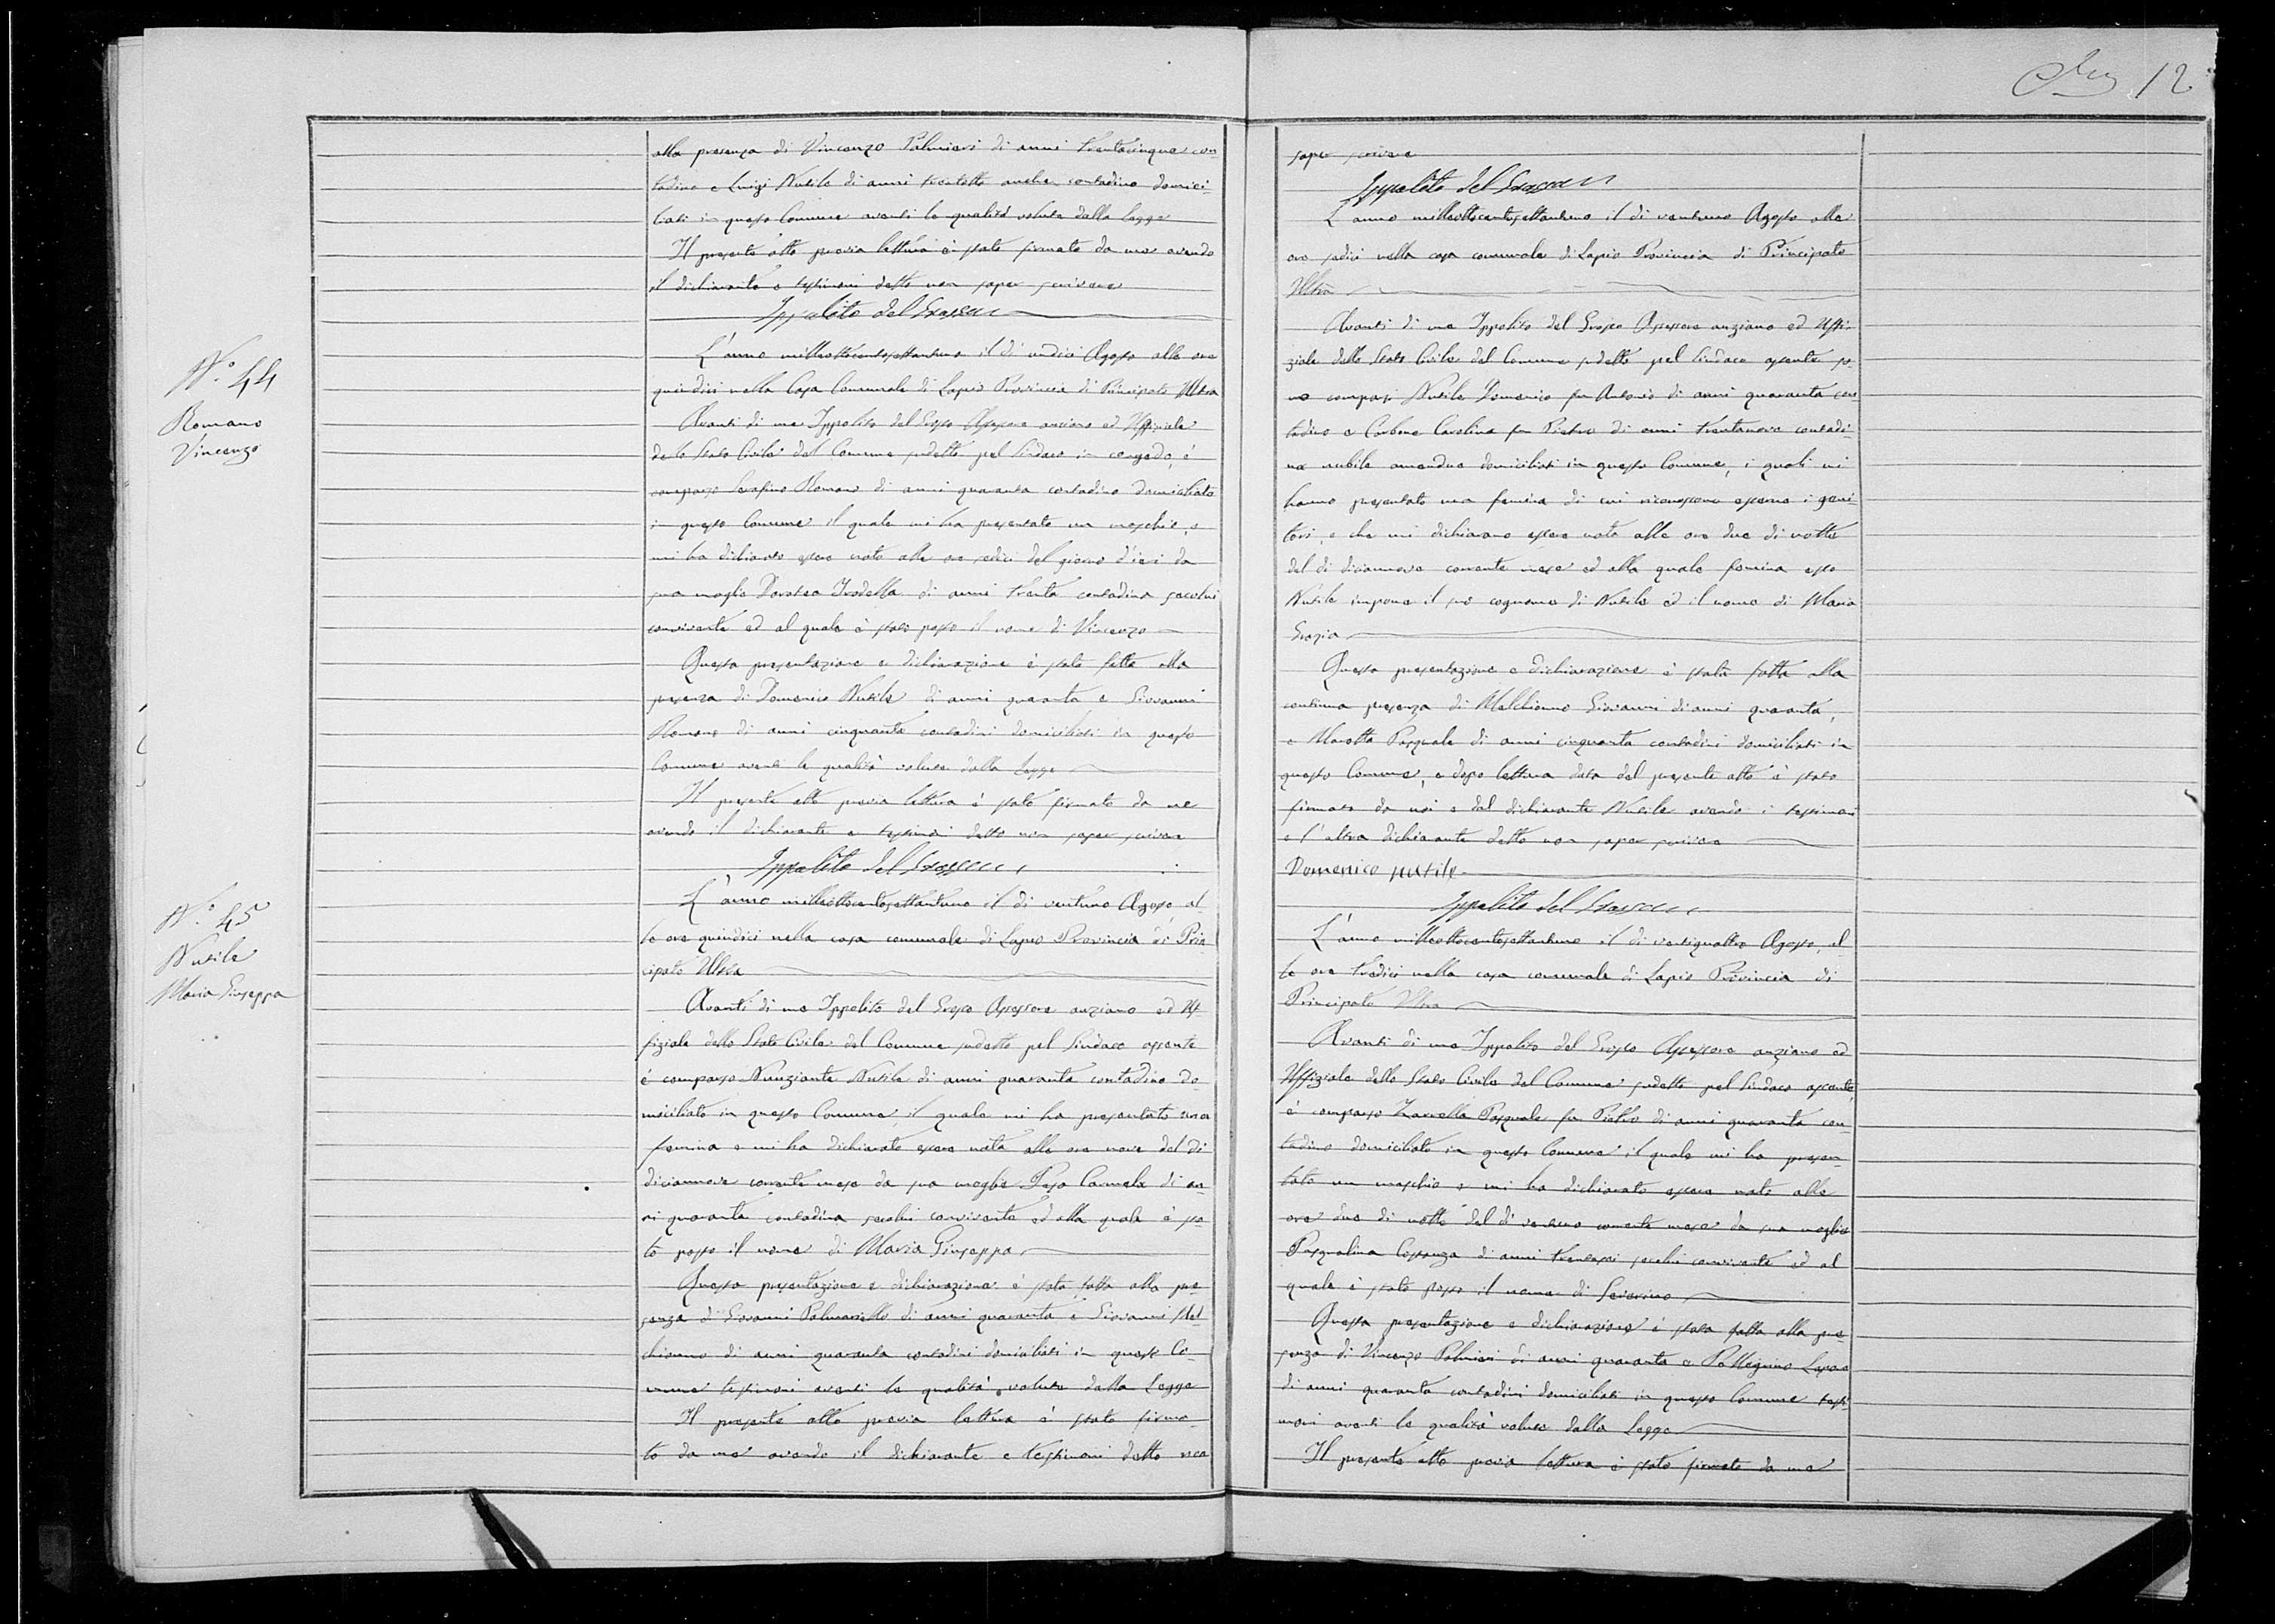 12
alla presenza di Vincenzo Palmieri di anni trentacinque con-
tadino e Luigi Nutile di anni trentotto anche contadino domici-
liati in questo Comune aventi le qualità volute dalla legge
Il presente atto previa lettura è stato firmato da me avendo
il dichiarante e testimoni detto non saper scrivere
Ippolito del Grosso
N.o 44
Romano
Vincenzo
L'anno milleottocentosettantuno il dì undici Agosto alle ore
quindici nella Casa Comunale di Lapio Provincia di Principato Ultra
Avanti di me Ippolito del Grosso Assessore anziano ed Uffiziale
dello Stato Civile del Comune sudetto pel Sindaco in congedo, è
comparso Serafino Romano di anni quaranta contadino domiciliato
in questo Comune il quale mi ha presentato un maschio, e
mi ha dichiarato essere nato alle ore sedici del giorno d'ieri da
sua moglie Dorotea Trodella di anni trenta contadina secolui
convivente ed al quale è stato posto il nome di Vincenzo
Questa presentazione e dichiarazione è stata fatta alla
presenza di Domenico Nutile di anni quaranta e Giovanni
Romano di anni cinquanta contadini domiciliati in questo
Comune aventi le qualità volute dalla legge
Il presente atto previa lettura è stato firmato da me
avendo il dichiarante e testimoni detto non saper scrivere
Ippolito del Grosso
N.o 45
Nutile
Maria Giuseppa
L'anno milleottocentosettantuno il dì ventuno Agosto, al-
le ore quindici nella casa comunale di Lapio Provincia di Prin
cipato Ultra
Avanti di me Ippolito del Grosso Assessore anziano ed Uf-
fiziale dello Stato Civile del Comune sudetto pel Sindaco assente
è comparso Nunziante Nutile di anni quaranta contadino do-
miciliato in questo Comune, il quale mi ha presentato una
femina e mi ha dichiarato essere nata alle ore nove del dì
diciannove corrente mese da sua moglie Peso Carmela di an-
ni quaranta contadina secolui convivente ed alla quale è sta-
to posto il nome di Maria Giuseppa
Questa presentazione e dichiarazione è stata fatta alla pre-
senza di Giovanni Palmariello di anni quaranta e Giovanni Mel-
chionno di anni quaranta contadini domiciliati in questo Co-
mune testimoni aventi le qualità volute dalla legge
Il presente atto previa lettura è stato firma-
to da me avendo il dichiarante e testimoni detto non
saper scrivere
Ippolito del Grosso
L'anno milleottocentosettantuno il dì ventuno Agosto alle
ore sedici nella casa comunale di Lapio Provincia di Principato
Ultra
Avanti di me Ippolito del Grosso Assessore anziano ed Uffi-
ziale dello Stato Civile del Comune sudetto pel Sindaco assente so-
no comparsi Nutile Domenico fu Antonio di anni quaranta con-
tadino e Carbone Carolina fu Pietro di anni trentanove contadi-
na nubile amendue domiciliati in questo Comune, i quali mi
hanno presentato una femina di cui riconoscono esserne i geni-
tori, e che mi dichiarano essere nata alle ore due di notte
del dì diciannove corrente mese ed alla quale femina esso
Nutile impone il suo cognome di Nutile ed il nome di Maria
Grazia
Questa presentazione e dichiarazione è stata fatta alla
continua presenza di Melchionno Giovanni di anni quaranta,
e Marotta Pasquale di anni cinquanta contadini domiciliati in
questo Comune, e dopo lettura data del presente atto è stato
firmato da noi e dal dichiarante Nutile avendo i testimoni
e l'altra dichiarante detto non saper scrivere
Domenico nutile
Ippolito del Grosso
L'anno milleottocentosettantuno il dì ventiquattro Agosto, al
le ore tredici nella casa comunale di Lapio Provincia di
Principato Ultra
Avanti di me Ippolito del Grosso Assessore anziano ed
Uffiziale dello Stato Civile del Comune sudetto pel Sindaco assente,
è comparso Zarrella Pasquale fu Pietro di anni quaranta con-
tadino domiciliato in questo Comune il quale mi ha presen-
tato un maschio e mi ha dichiarato essere nato alle
ore due di notte del dì ventuno corrente mese da sua moglie
Pasqualina Costanza di anni trentasei secolui convivente ed al
quale è stato posto il nome di Severino
Questa presentazione e dichiarazione è stata fatta alla pre-
senza di Vincenzo Palmieri di anni quaranta e Pellegrino
di anni quaranta contadini domiciliati in questo Comune testi-
moni aventi le qualità volute dalla legge
Il presente atto previa lettura è stato firmato da me